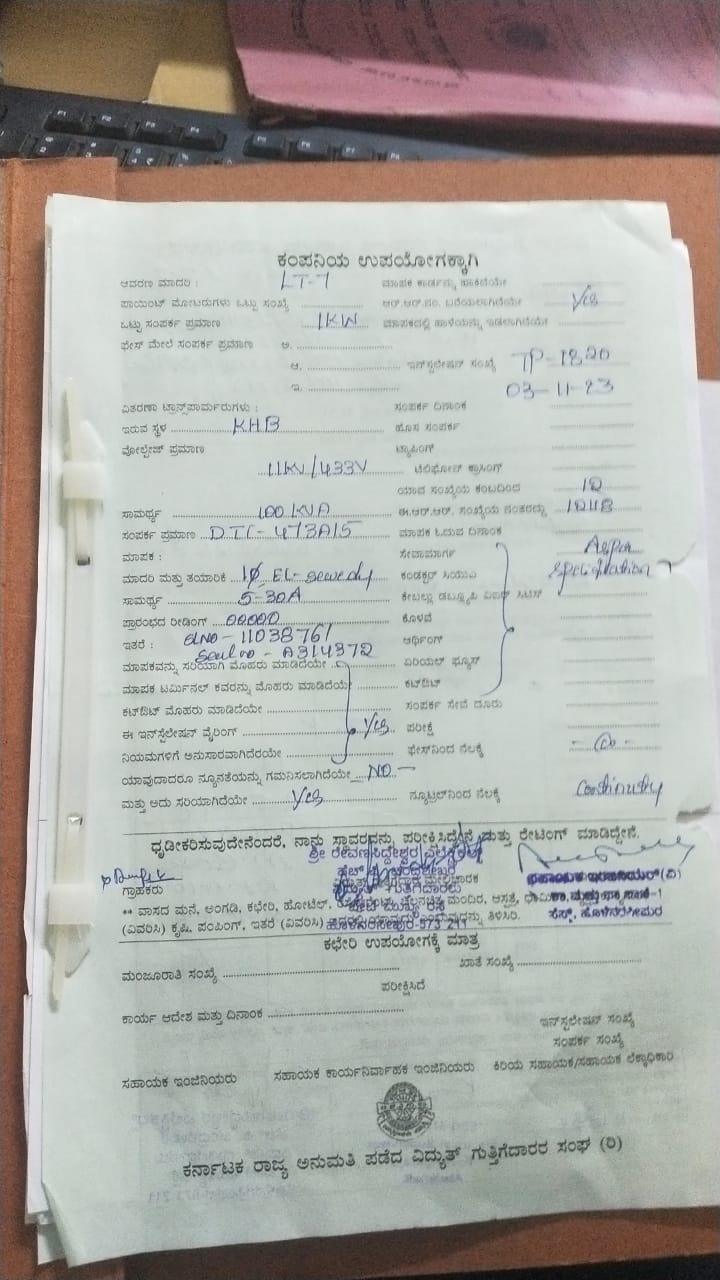 ಕಂಪನಿಯ ಉಪಯೋಗಕ್ಕಾಗಿ
ಆವರಣ ಮಾದರಿ : LT-7 ಮಾಪಕ ಕಾರ್ಡನ್ನು ಹಾಕಿದೆಯೇ
ಪಾಯಿಂಟ್ ಮೋಟರುಗಳು ಒಟ್ಟು ಸಂಖ್ಯೆ ಆರ್.ಆರ್.ನಂ. ಬರೆಯಲಾಗಿದೆಯೇ Yes
ಒಟ್ಟು ಸಂಪರ್ಕ ಪ್ರಮಾಣ 1KW ಮಾಪಕದಲ್ಲಿ ಹಾಳೆಯನ್ನು ಇಡಲಾಗಿದೆಯೇ
ಫೇಸ್ ಮೇಲೆ ಸಂಪರ್ಕ ಪ್ರಮಾಣ ಅ.
ಆ. ಇನ್‌ಸ್ಟಲೇಷನ್ ಸಂಖ್ಯೆ TP-1820
ಇ. 03-11-23
ವಿತರಣಾ ಟ್ರಾನ್ಸ್‌ಫಾರ್ಮರುಗಳು : ಸಂಪರ್ಕ ದಿನಾಂಕ
ಇರುವ ಸ್ಥಳ KHB ಹೊಸ ಸಂಪರ್ಕ
ವೋಲ್ಟೇಜ್ ಪ್ರಮಾಣ ಟ್ಯಾಪಿಂಗ್
11KV/433V ಟೆಲಿಫೋನ್ ಕ್ರಾಸಿಂಗ್
ಯಾವ ಸಂಖ್ಯೆಯ ಕಂಬದಿಂದ 12
ಸಾಮರ್ಥ್ಯ 100 KVA ಈ.ಆರ್.ಆರ್. ಸಂಖ್ಯೆಯ ನಂತರದ್ದು
ಸಂಪರ್ಕ ಪ್ರಮಾಣ ಮಾಪಕ ಓದುವ ದಿನಾಂಕ
ಮಾಪಕ : ಸೇವಾಮಾರ್ಗ As per
ಮಾದರಿ ಮತ್ತು ತಯಾರಿಕೆ 1φ, EL-sewedy ಕಂಡಕ್ಟರ್ ಸಿಯುಎ specification
ಸಾಮರ್ಥ್ಯ 5-30A ಕೇಬಲ್ಲು
ಪ್ರಾರಂಭದ ರೀಡಿಂಗ್ 00000 ಕೊಳವೆ
ಇತರೆ : slno-11038761 ಆರ್ಥಿಂಗ್
Seal no - A314372
ಮಾಪಕವನ್ನು ಸರಿಯಾಗಿ ಮೊಹರು ಮಾಡಿದೆಯೇ ಏರಿಯಲ್ ಫ್ಯೂಸ್
ಮಾಪಕ ಟರ್ಮಿನಲ್ ಕವರನ್ನು ಮೊಹರು ಮಾಡಿದೆಯೇ ಕಟ್‌ಔಟ್
ಕಟ್‌ಔಟ್ ಮೊಹರು ಮಾಡಿದೆಯೇ ಸಂಪರ್ಕ ಸೇವೆ ದೂರು
ಈ ಇನ್‌ಸ್ಟಲೇಷನ್ ವೈರಿಂಗ್ Yes ಪರೀಕ್ಷೆ
ನಿಯಮಗಳಿಗೆ ಅನುಸಾರವಾಗಿದೆಯೇ ಫೇಸ್‌ನಿಂದ ನೆಲಕ್ಕೆ
ಯಾವುದಾದರೂ ನ್ಯೂನತೆಯನ್ನು ಗಮನಿಸಲಾಗಿದೆಯೇ NO
ಮತ್ತು ಅದು ಸರಿಯಾಗಿದೆಯೇ Yes ನ್ಯೂಟ್ರಲ್‌ನಿಂದ ನೆಲಕ್ಕೆ Continuity
ಧೃಡೀಕರಿಸುವುದೇನೆಂದರೆ, ನಾನು ಸ್ಥಾವರವನ್ನು ಪರೀಕ್ಷಿಸಿದ್ದೇನೆ ಮತ್ತು ರೇಟಿಂಗ್ ಮಾಡಿದ್ದೇನೆ.
ಶ್ರೀ ರೇವಣಸಿದ್ದೇಶ್ವರ
ಗ್ರಾಹಕರು ಸಹಾಯಕ ಇಂಜಿನಿಯರ್(ವಿ)
** ವಾಸದ ಮನೆ, ಅಂಗಡಿ, ಕಛೇರಿ, ಹೋಟೆಲ್, ಮಂದಿರ, ಆಸ್ಪತ್ರೆ,
(ವಿವರಿಸಿ) ಕೃಷಿ, ಪಂಪಿಂಗ್, ಇತರೆ (ವಿವರಿಸಿ) ತಿಳಿಸಿರಿ. ಸೆಸ್ಕ್, ಹೊಳೆನರಸೀಪುರ
ಹೊಳೆನರಸೀಪುರ-573 211
ಕಛೇರಿ ಉಪಯೋಗಕ್ಕೆ ಮಾತ್ರ
ಮಂಜೂರಾತಿ ಸಂಖ್ಯೆ ಖಾತೆ ಸಂಖ್ಯೆ
ಪರೀಕ್ಷಿಸಿದೆ
ಕಾರ್ಯ ಆದೇಶ ಮತ್ತು ದಿನಾಂಕ
ಇನ್‌ಸ್ಟಲೇಷನ್ ಸಂಖ್ಯೆ
ಸಂಪರ್ಕ ಸಂಖ್ಯೆ
ಸಹಾಯಕ ಇಂಜಿನಿಯರು ಸಹಾಯಕ ಕಾರ್ಯನಿರ್ವಾಹಕ ಇಂಜಿನಿಯರು ಕಿರಿಯ ಸಹಾಯಕ/ಸಹಾಯಕ ಲೆಕ್ಕಾಧಿಕಾರಿ
ಕರ್ನಾಟಕ ರಾಜ್ಯ ಅನುಮತಿ ಪಡೆದ ವಿದ್ಯುತ್ ಗುತ್ತಿಗೆದಾರರ ಸಂಘ (ರಿ)